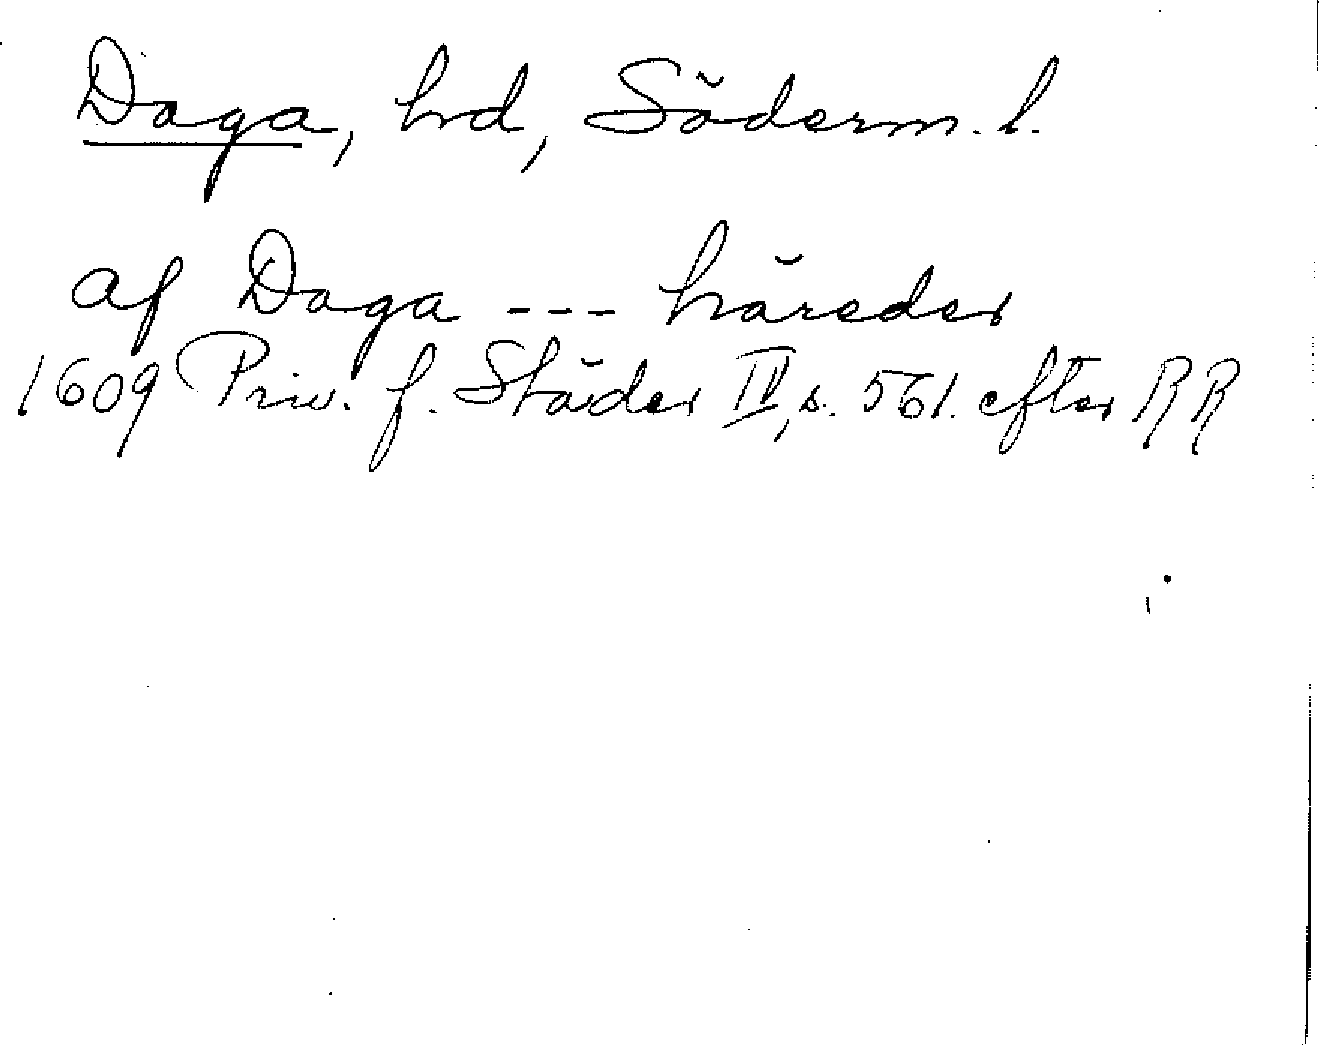 Daga, hd, Söderm. l.
af Daga --- häreder
1609 Priv. f. Städer II, s. 561. efter RR